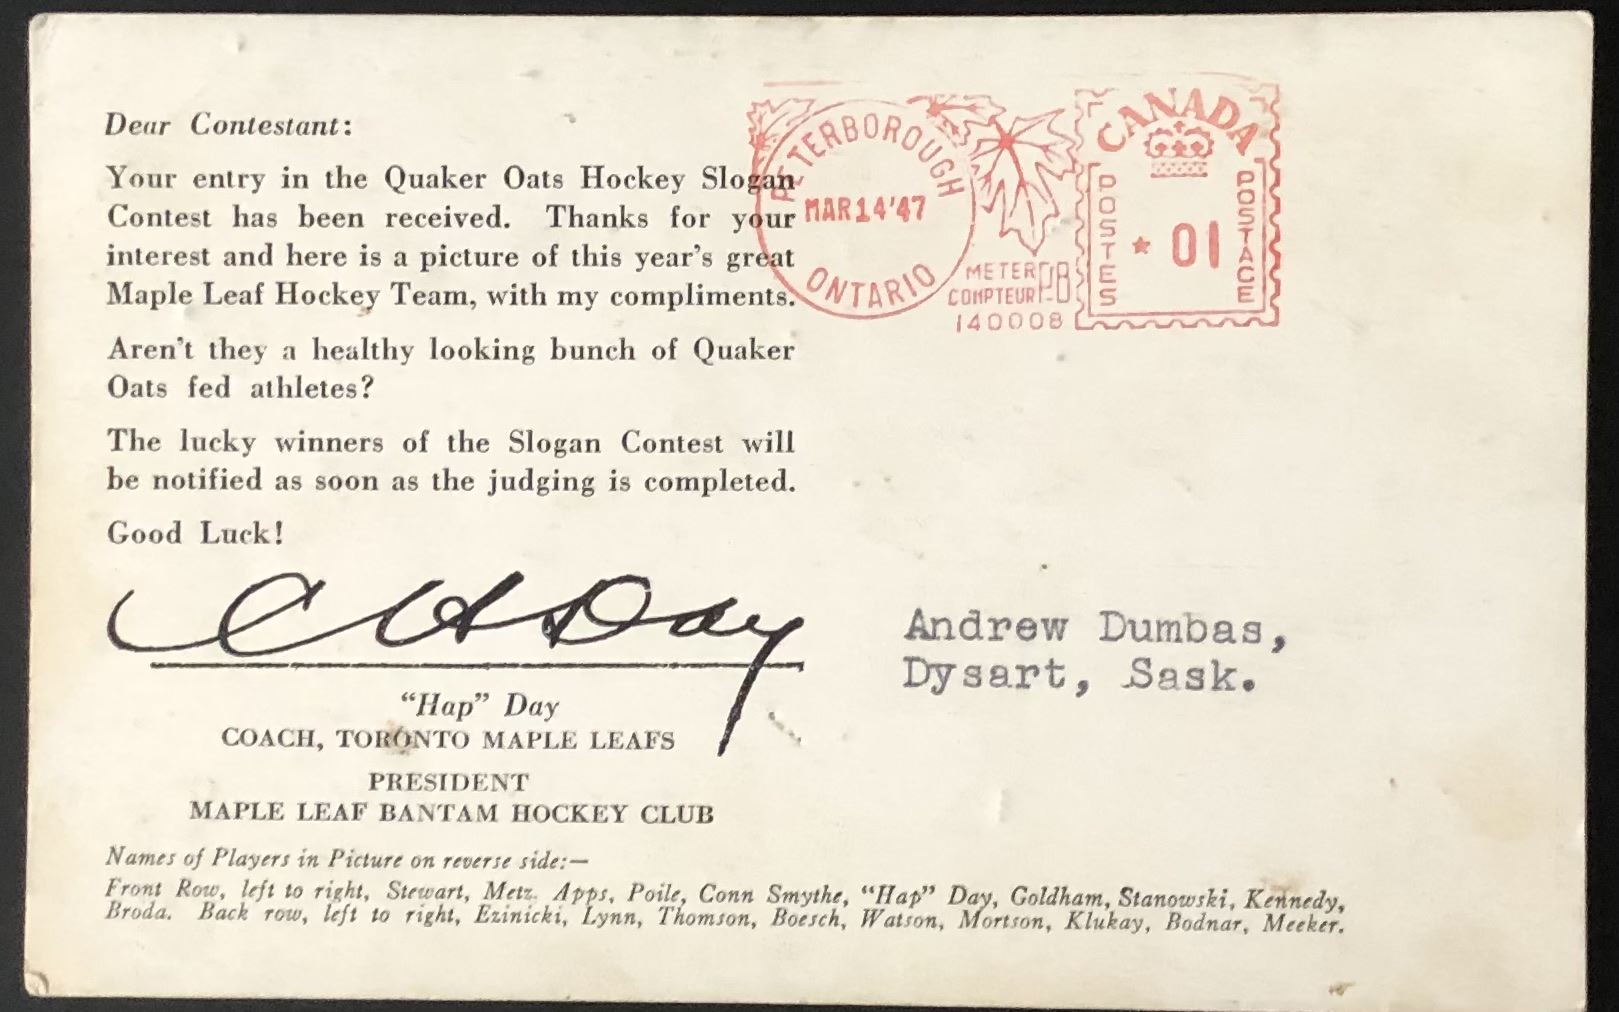 Dear Contestant:
Your entry in the Quaker Oats Hockey Slogan
Contest has been received. Thanks for your
interest and here is a picture of this year's great
Maple Leaf Hockey Team, with my compliments.
Aren't they a healthy looking bunch of Quaker
Oats fed athletes?
The lucky winners of the Slogan Contest will
be notified as soon as the judging is completed.
Good Luck!
C H Day
"Hap" Day
COACH, TORONTO MAPLE LEAFS
PRESIDENT
MAPLE LEAF BANTAM HOCKEY CLUB
PETERBOROUGH
MAR 14 '47
ONTARIO
METER
COMPTEUR
PB
140008
CANADA
POSTES
* 01
POSTAGE
Andrew Dumbas,
Dysart, Sask.
Names of Players in Picture on reverse side:—
Front Row, left to right, Stewart, Metz. Apps, Poile, Conn Smythe, "Hap" Day, Goldham, Stanowski, Kennedy,
Broda. Back row, left to right, Ezinicki, Lynn, Thomson, Boesch, Watson, Mortson, Klukay, Bodnar, Meeker.